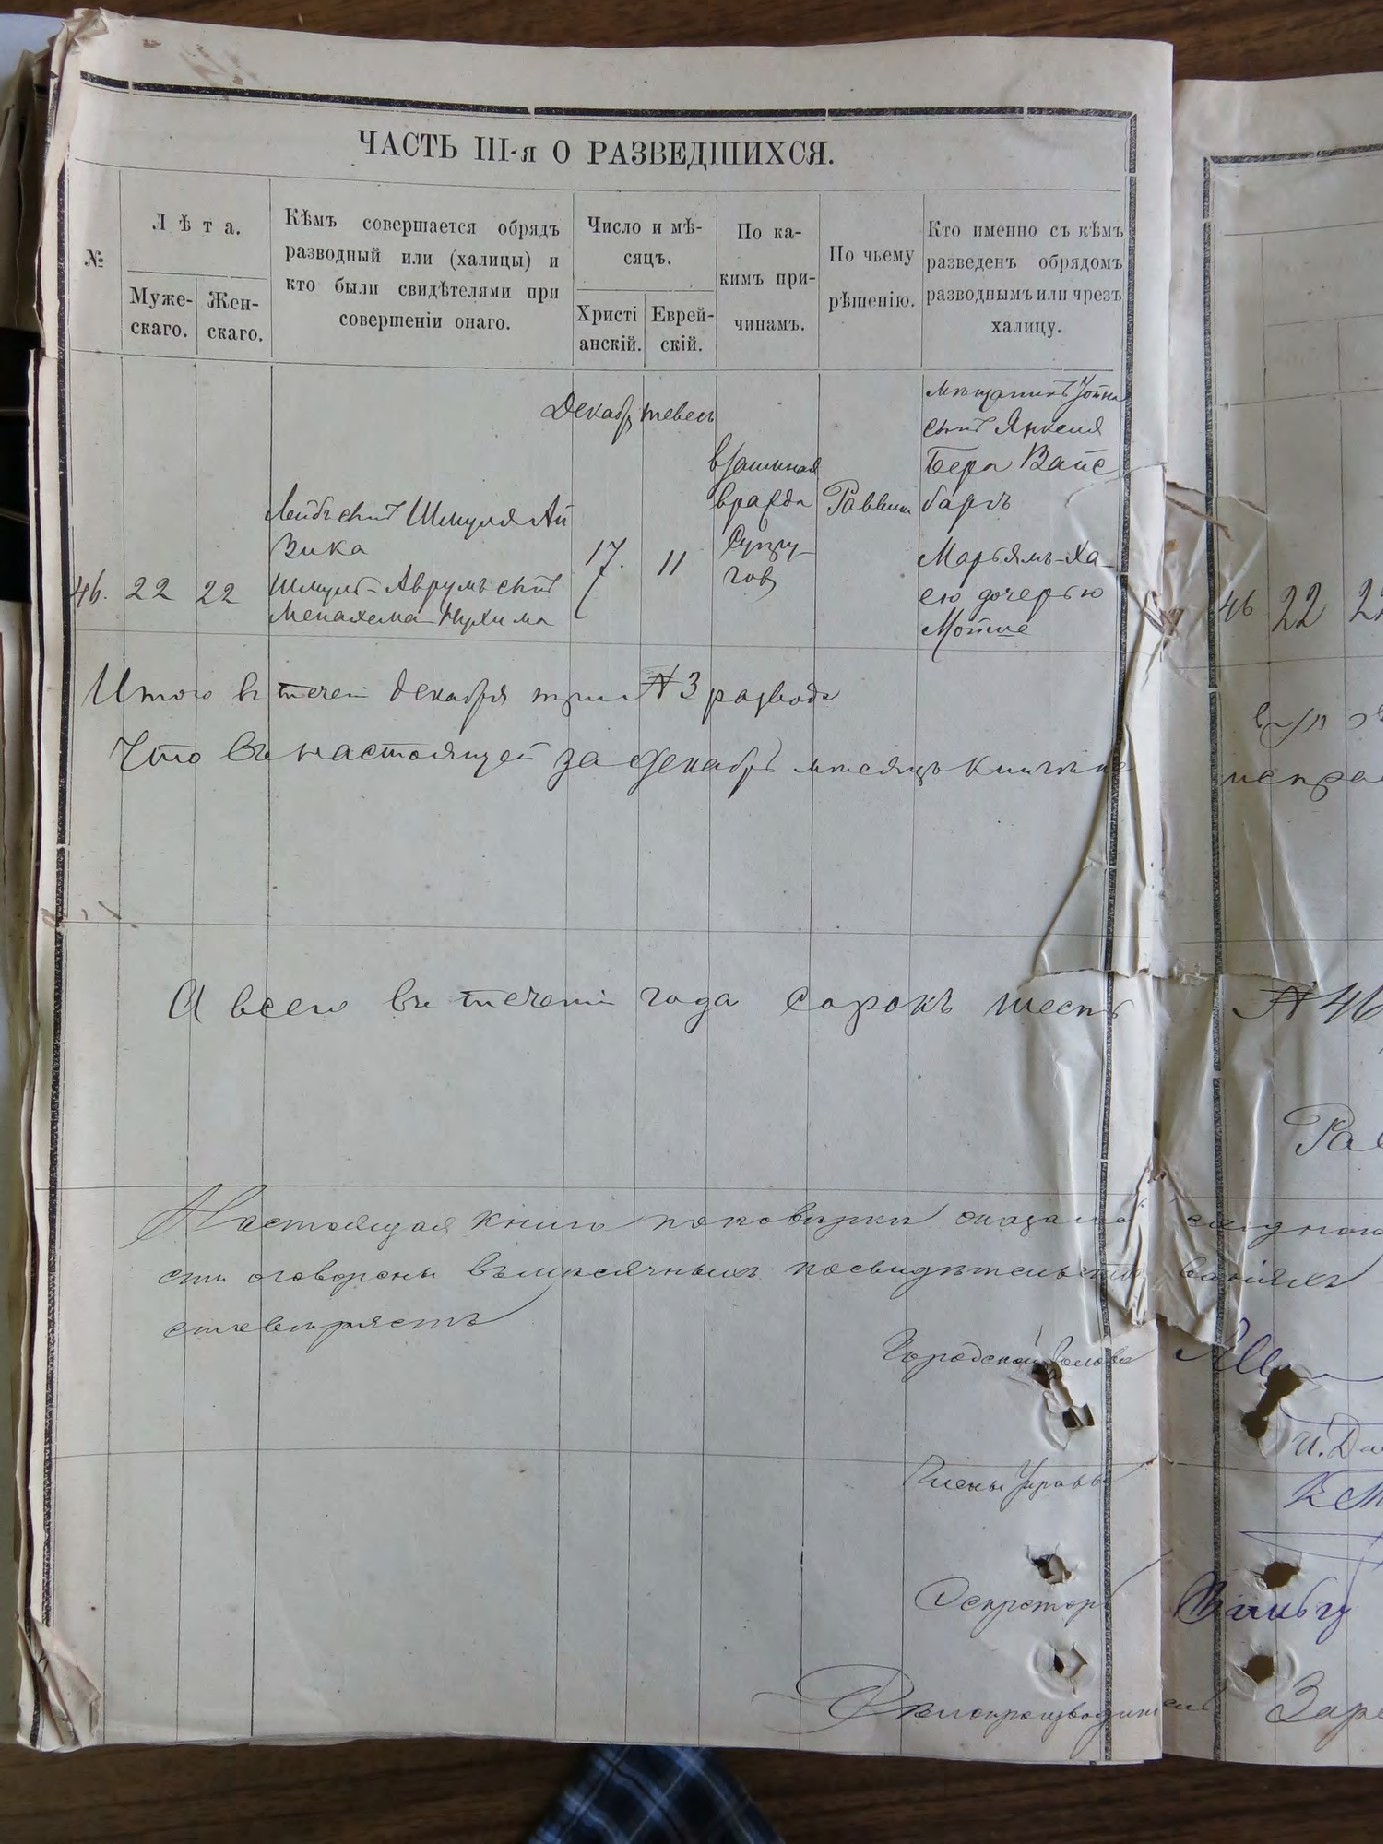 ЧАСТЬ III-я О РАЗВЕДШИХСЯ.
№
Лѣта.
Муже-
скаго.
Жен-
скаго.
Кѣмъ совершается обрядъ
разводный или (халицы) и
кто были свидѣтелями при
совершеніи онаго.
Число и мѣ-
сяцъ.
Христі
анскій.
Еврей-
скій.
По ка-
кимъ при-
чинамъ.
По чьему
рѣшенію.
Кто именно съ кѣмъ
разведенъ обрядомъ
разводнымъ или чрезъ
халицу.
46. 22 22
Лейбъ сынъ Шмуля Ай
зика
Шмуль-Аврумъ сынъ
Менахема-Нухима
Декабр
17.
тевесъ
11
взаимная
вражда
супру-
говъ
Раввин
мѣщанинъ
сынъ Янкеля
Бера Вайс
баргъ
Марьямъ-Ха-
ею дочерью
Мотте
Итого въ течен декабря три № 3 развода
Что въ настоящей за декабрь мѣсяцъ книгѣ не
А всего въ теченіи года сорокъ шесть
Настоящая книга
оговорены
Городской Голова
Члены Управы
Секретарь
Дѣлопроизводитель
46 22
испра
№ 46
Ра